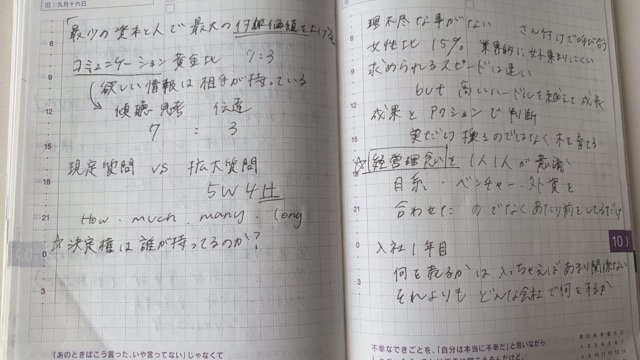 旧:九月十六日
「最少の資本と人で最大の付加価値を上げる
コミュニケーション黄金比 7:3
欲しい情報は相手が持っている
傾聴 思考 伝達
7 : 3
現定質問 vs 拡大質問
5W4H
How. much. many. long
☆決定権は誰が持ってるのか?
「あのときはこう言った、いや言ってない」じゃなくて
理不尽な事がない さん付けで呼び合う
女性比 15% 業界的に女子集まりにくい
求められるスピードは速い
but 高いハードルを越えて成長
成果とアクションで判断
実だけ採るのではなく木を育てる
☆経営理念を1人1人が意識
日系・ベンチャー・外資を
合わせた のでなくあたり前をしてるだけ
入社1年目
何を売るかは入っちゃえばあまり関係ない
それよりも どんな会社で何をするか
10
不幸なできごとを、「自分は本当に不幸だ」と思いながら